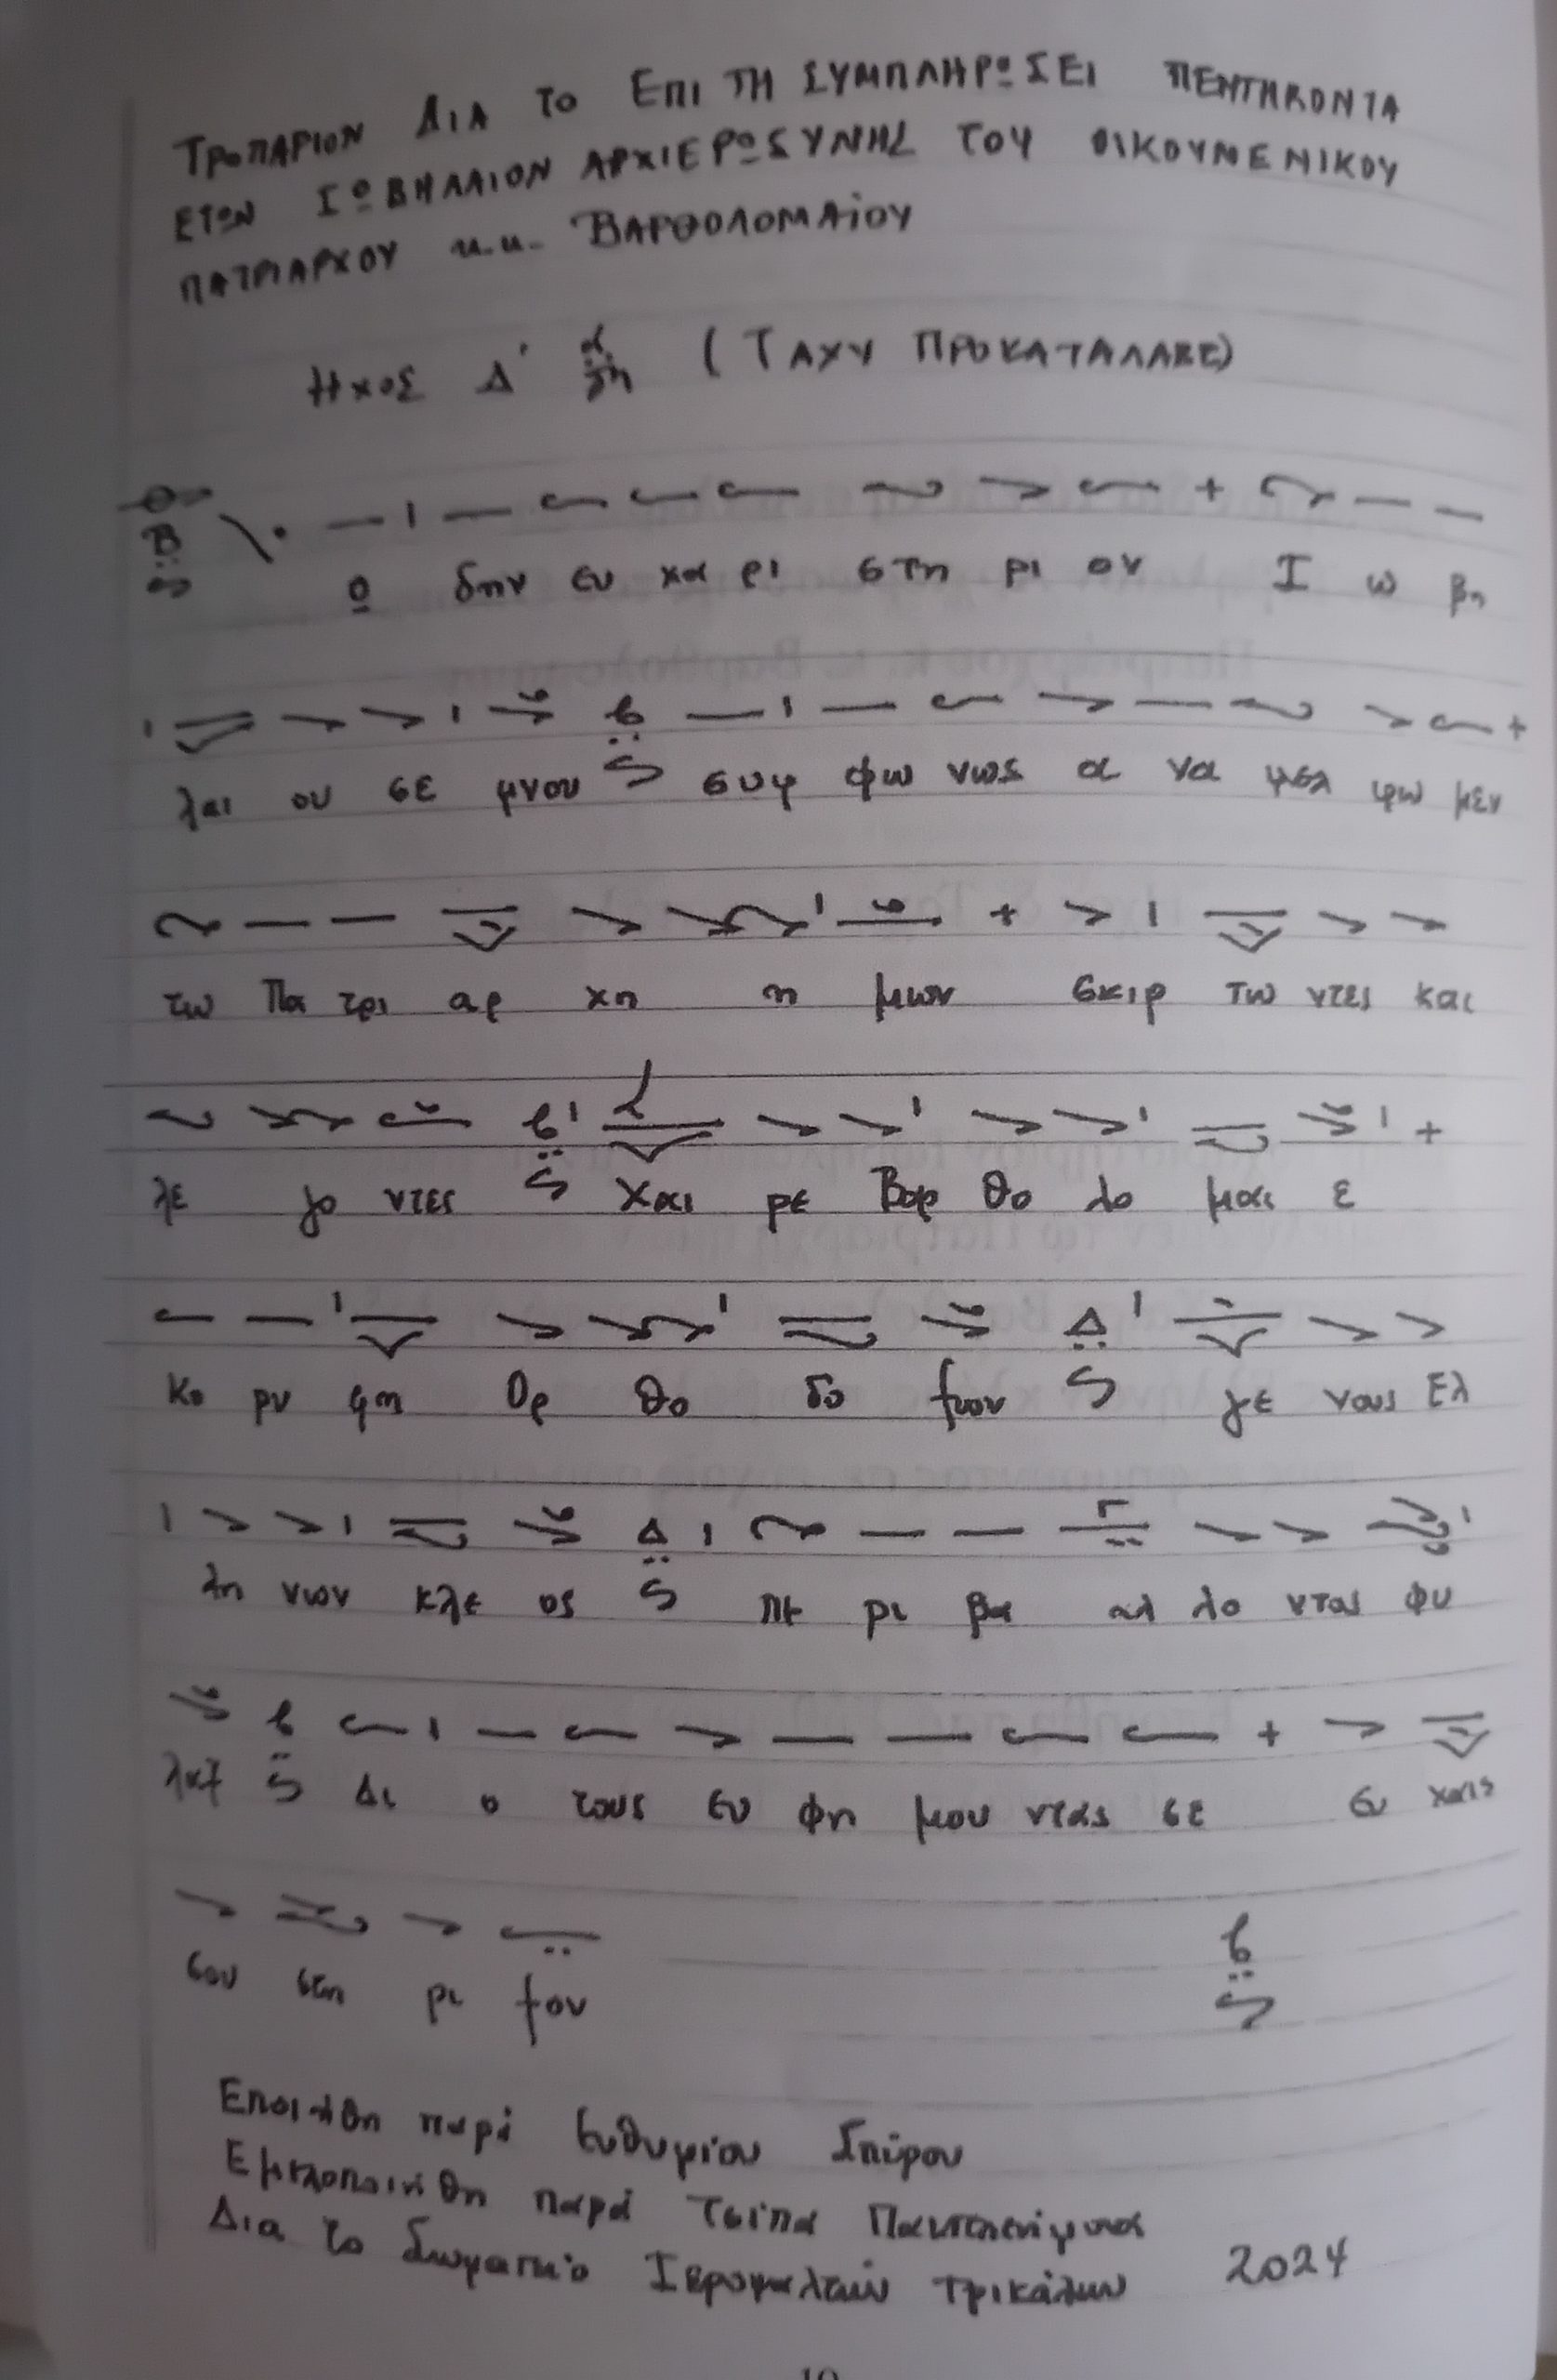 ΤΡΟΠΑΡΙΟΝ ΔΙΑ ΤΟ ΕΠΙ ΤΗ ΣΥΜΠΛΗΡΩΣΕΙ ΠΕΝΤΗΚΟΝΤΑ
ΕΤΩΝ ΙΩΒΗΛΑΙΟΝ ΑΡΧΙΕΡΩΣΥΝΗΣ ΤΟΥ ΟΙΚΟΥΜΕΝΙΚΟΥ
ΠΑΤΡΙΑΡΧΟΥ κ.κ. ΒΑΡΘΟΛΟΜΑίΟΥ
ΗΧΟΣ Δ΄ (ΤΑΧΥ ΠΡΟΚΑΤΑΛΑΒΕ)
Ω δην ευ χα ρι στη ρι ον Ι ω βη
λαι ου σε μνου συμ φω νως α να μελ ψω μεν
τω Πα τρι αρ χη η μων σκιρ τω ντες και
λε γο ντες Χαι ρε Βαρ θο λο μαι ε
κο ρυ φη Ορ θο δο ξων γε νους Ελ
λη νων κλε ος πε ρι βα αλ λο ντας φυ
Δι ο τους ευ φη μου ντας σε ευ χαις
σου στη ρι ξον
Εποιήθη παρά Ευθυμίου Σπύρου
Εμελοποιήθη παρά Τσίπα Παντελεήμονα
Δια το Σωματείο Ιεροψαλτών Τρικάλων 2024
10